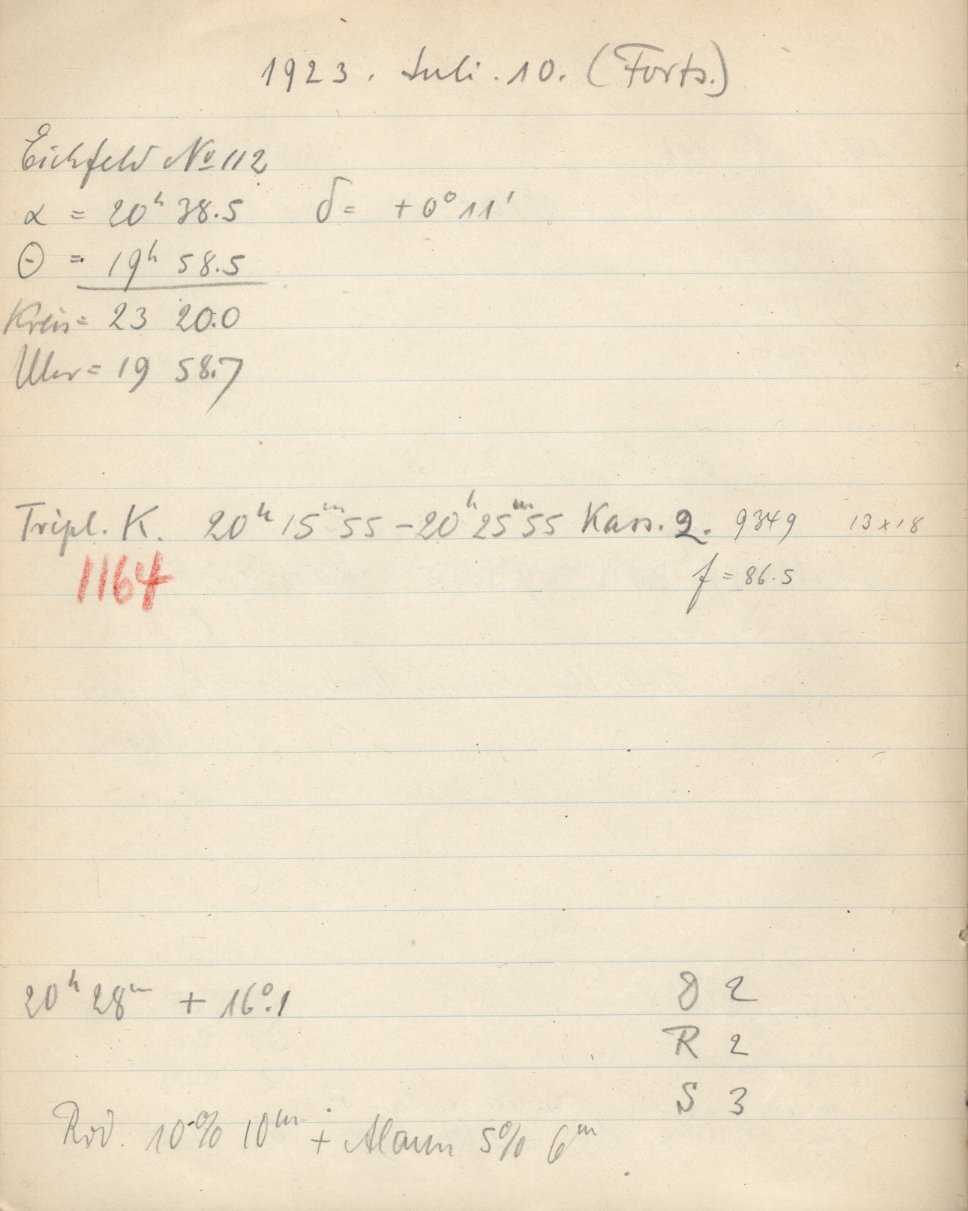 1923. Juli. 10. (Forts.)
Eichfeld No 112
α = 20h 38.5 δ = +0° 11'
Θ = 19h 58.5
Kreis = 23 20.0
Uhr = 19 58.7
Tripl. K. 20h 15m 55 - 20h 25m 55 Kass. 2. 9349 13 x 18
1164 f = 86.5
20h 28m + 16°.1 D 2
R 2
S 3
Rod. 10% 10m + Alaun 5% 6m